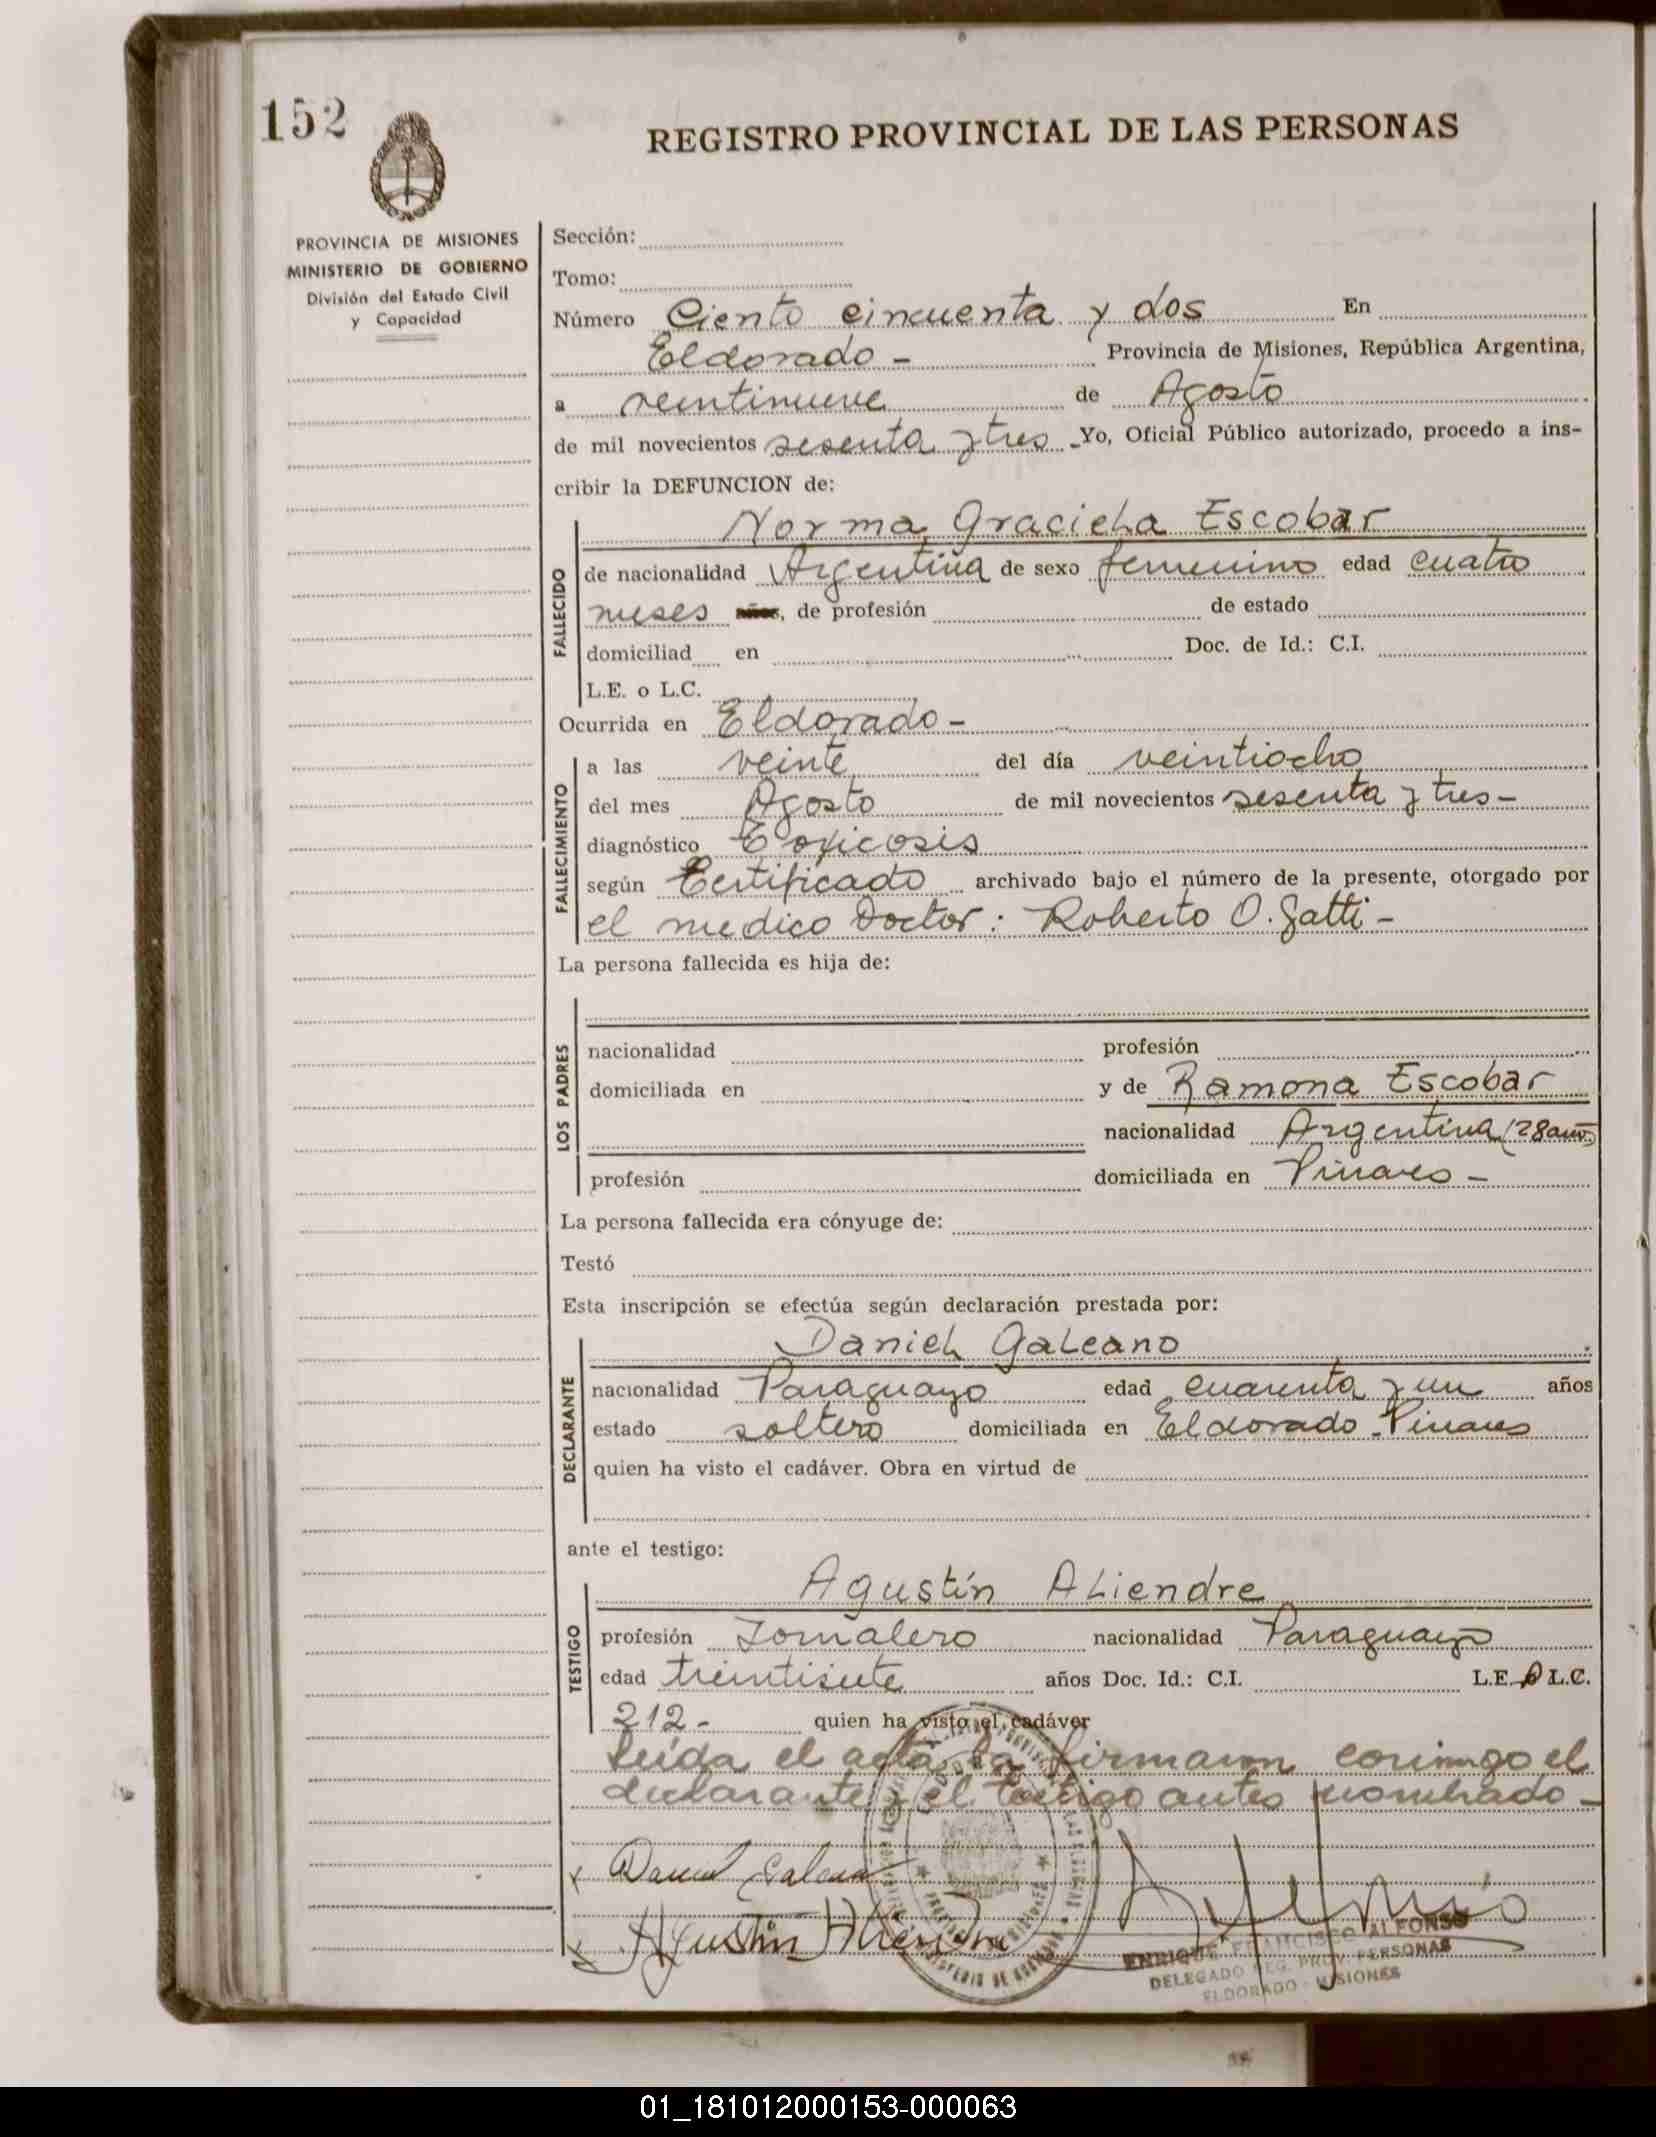 152
REGISTRO PROVINCIAL DE LAS PERSONAS
PROVINCIA DE MISIONES
MINISTERIO DE GOBIERNO
División del Estado Civil
y Capacidad
Sección:
Tomo:
Número Ciento cincuenta y dos En
Eldorado - Provincia de Misiones, República Argentina,
a veintinueve de Agosto
de mil novecientos sesenta y tres Yo, Oficial Público autorizado, procedo a ins-
cribir la DEFUNCION de:
FALLECIDO
Norma Graciela Escobar
de nacionalidad Argentina de sexo femenino edad cuatro
meses años, de profesión de estado
domiciliad en Doc. de Id.: C.I.
L.E. o L.C.
Ocurrida en Eldorado -
FALLECIMIENTO
a las veinte del día veintiocho
del mes Agosto de mil novecientos sesenta y tres -
diagnóstico Toxicosis
según Certificado archivado bajo el número de la presente, otorgado por
el medico Doctor: Roberto O. Gatti -
La persona fallecida es hija de:
LOS PADRES
nacionalidad profesión
domiciliada en y de Ramona Escobar
nacionalidad Argentina (28 años)
profesión domiciliada en Pinares -
La persona fallecida era cónyuge de:
Testó
Esta inscripción se efectúa según declaración prestada por:
DECLARANTE
Daniel Galeano
nacionalidad Paraguayo edad cuarenta y un años
estado soltero domiciliada en Eldorado - Pinares
quien ha visto el cadáver. Obra en virtud de
ante el testigo:
TESTIGO
Agustín Aliendre
profesión Jornalero nacionalidad Paraguayo
edad treintisiete años Doc. Id.: C.I. L.E. o L.C.
212 - quien ha visto el cadáver
Leída el acta la firmaron conmigo el
declarante y el testigo antes nombrado -
x Daniel Galeano
x Agustin Aliendre
ENRIQUE FRANCISCO ALFONSO
DELEGADO REG. PROV. PERSONAS
ELDORADO - MISIONES
01_181012000153-000063